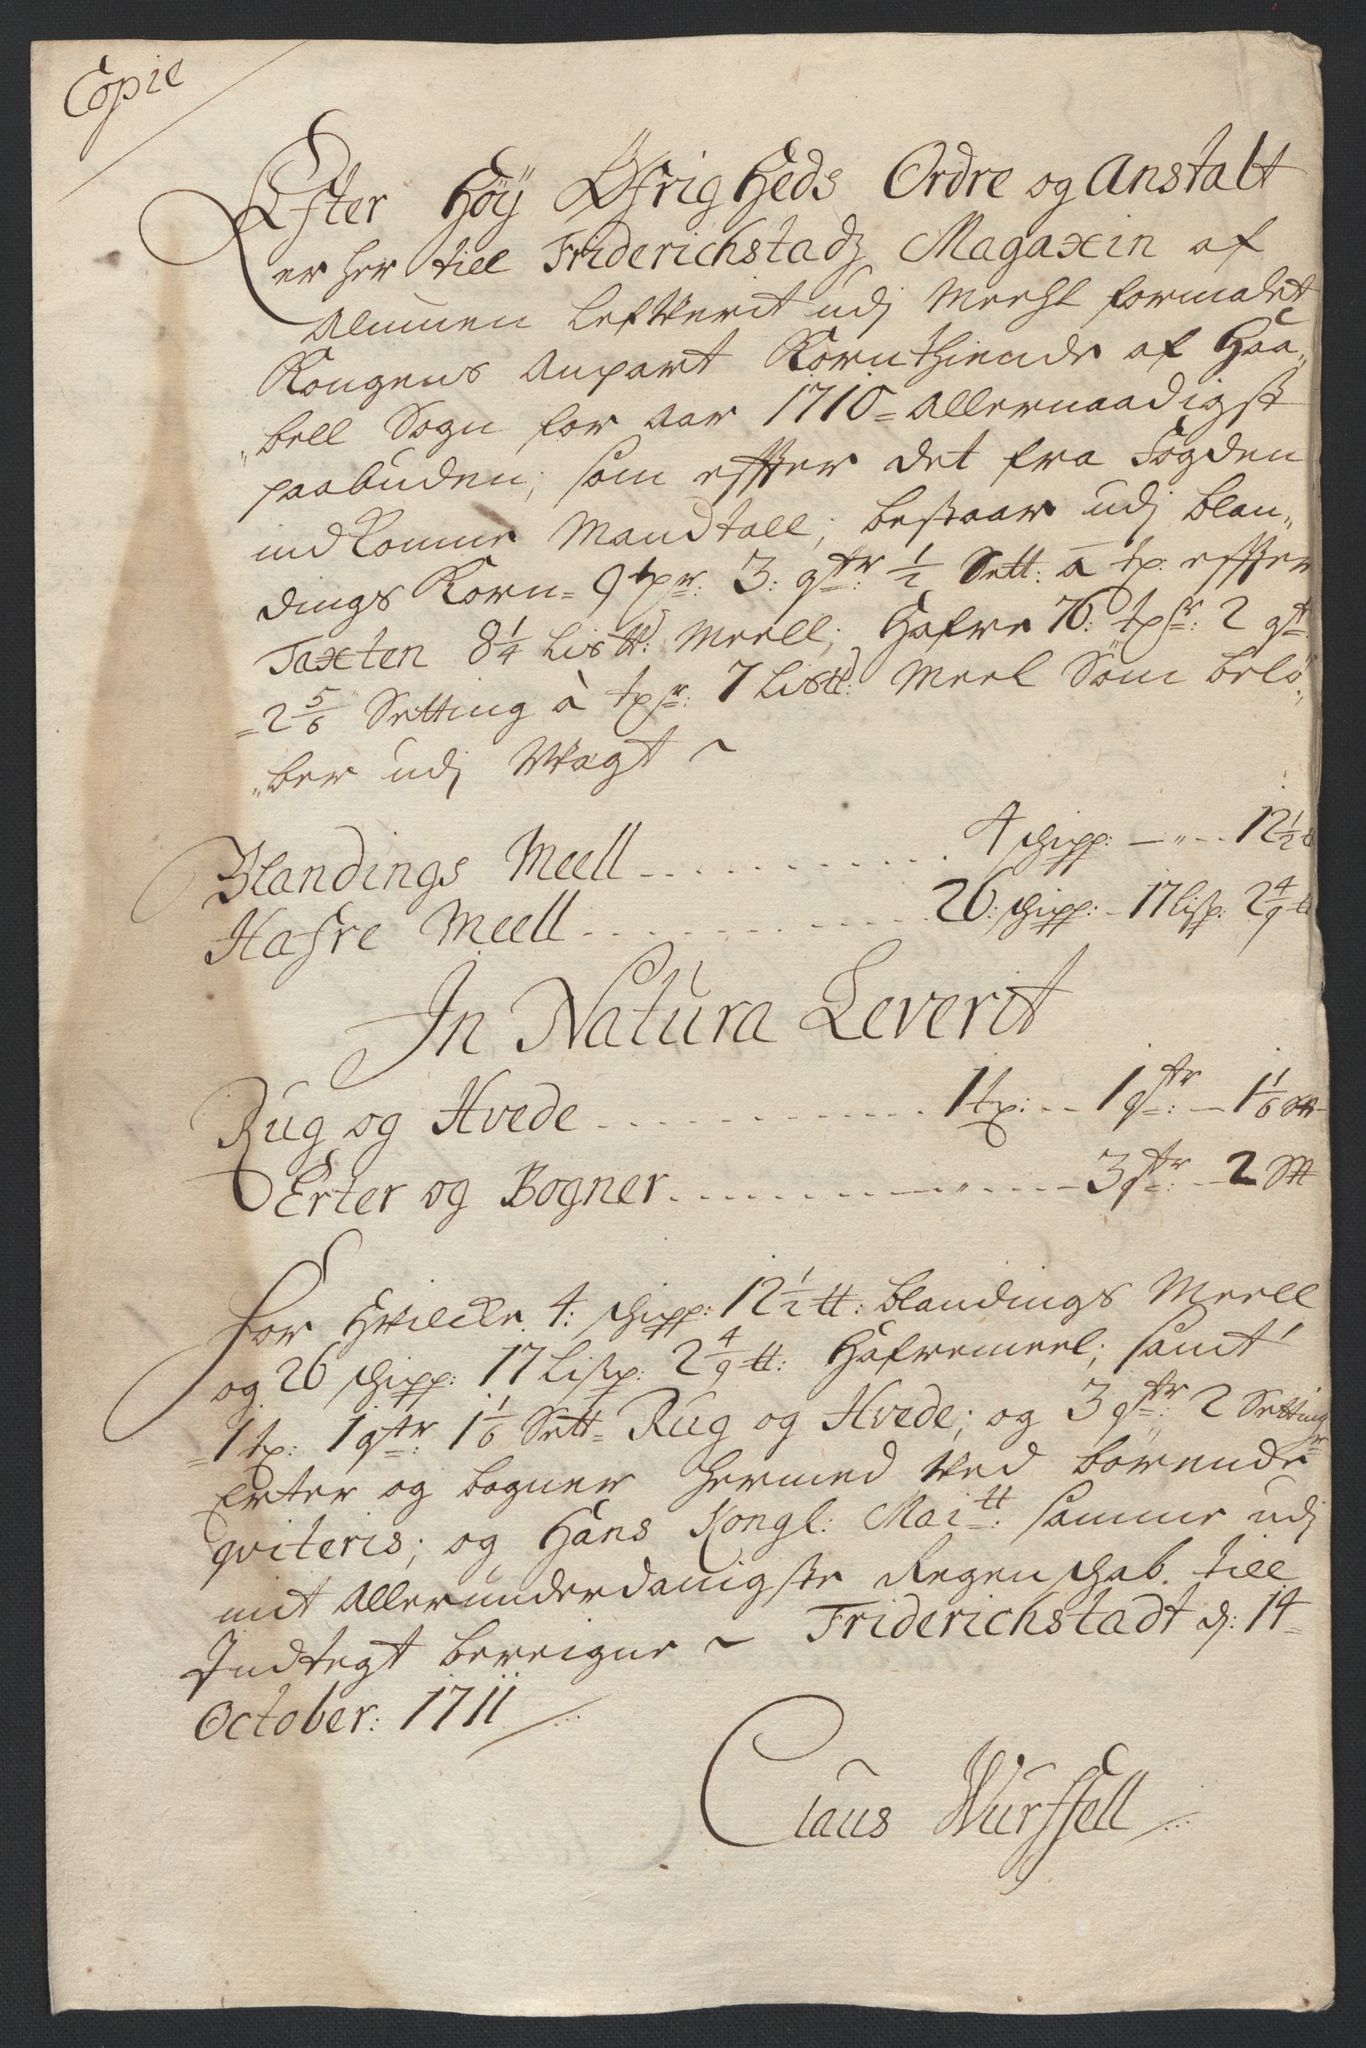 Copie
Efter Høy Øfrigheds Ordre og Anstalt
er her till Friderichstadz Magaxin af
Almuen lefverit udj Meehl formalet
Kongens Anpart Kornthiende af Haa„
„bell Sogn for Aar 1710 = Allernaadigst
paabuden, som effter det fra Fogden
indkomne Mandtall, bestaar udj blan„
dings Korn = 9 tpr: 3: qtr: ½ Sett: a tp: effter
Taxten 8¼ List: Meell; Hafre 76: tpr: 2 qtr
= 2 5/6 Setting à tpr: 7 List: Meel Som belø„
„ber udj Vægt ~
Blandings Meell . . . . 4 schipp: — „ — 12½ tt
Hafre Meell . . . . 26: schipp: - 17 lisp: 2 4/9 tt
In Natura Leverit
Rug og Hvede . . . . 1 tp: — 1 qtr: — 1 1/6 Stt
Erter og Bogner . . . . — „ — 3 qtr: — 2 Stt
For hvilcke 4: schipp: 12½ tt: blandings Meell
og 26 schipp: 17 Lisp: 2 4/9 tt: Hafremeel; samt
= 1 tp: 1 qtr: 1 1/6 Sett= Rug og Hvede; og 3 qtr: 2 Settinger
Erter og bogner hermed ved børende
qviteris; og Hans Kongl: Maitt: samme udj
mit Allerunderdanigste Regenschab till
Indtegt bereigne ~ Friderichstadt d: 14=
October: 1711
Claus Wurffell